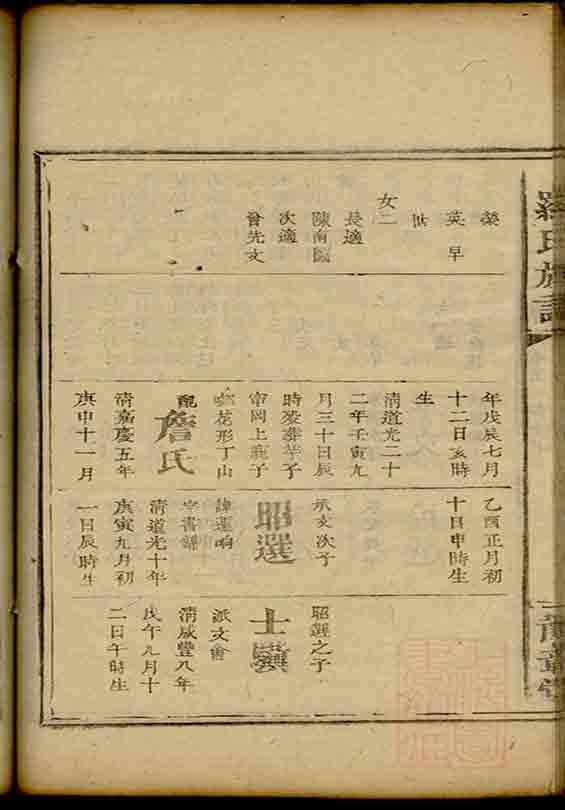 羅氏族譜
榮
英早
世
女二
長適
陳南國
次適
曾先文
年戊辰七月
十二日亥時
生
清道光二十
二年壬寅九
月三十日辰
時歿葬芋子
岡上
花形丁山
配詹氏
清嘉慶五年
庚申十一月
乙酉正月初
十日申時生
承文次子
昭選
諱運
字書
清道光十年
庚寅九月初
一日辰時生
昭選之子
士
派文會
清咸豐八年
戊午九月十
二日午時生